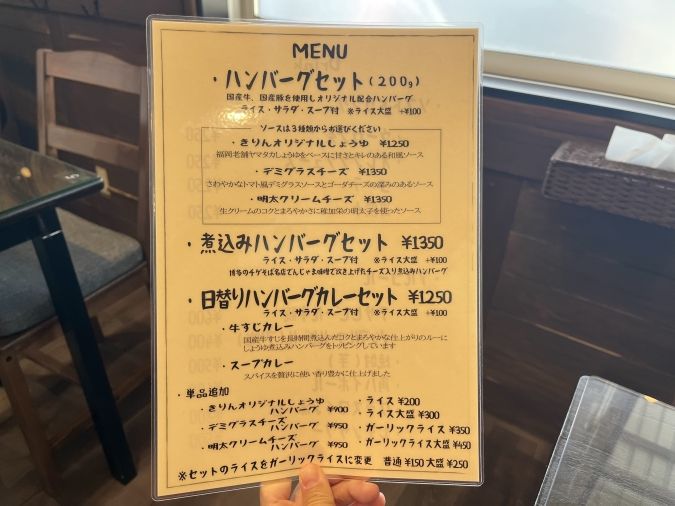 MENU
・ハンバーグセット(200g)
国産牛、国産豚を使用しオリジナル配合ハンバーグ
ライス・サラダ・スープ付 ※ライス大盛 +¥100
ソースは3種類からお選びください
・きりんオリジナルしょうゆ ¥1250
福岡老舗ヤマタカしょうゆをベースに甘さとキレのある和風ソース
・デミグラスチーズ ¥1350
さわやかなトマト風デミグラスソースとゴーダチーズの深みのあるソース
・明太クリームチーズ ¥1350
生クリームのコクとまろやかさに稚加栄の明太子を使ったソース
・煮込みハンバーグセット ¥1350
ライス・サラダ・スープ付 ※ライス大盛 +¥100
博多のチゲそば名店でんじゃま味噌で炊き上げたチーズ入り煮込みハンバーグ
・日替りハンバーグカレーセット ¥1250
ライス・サラダ・スープ付 ※ライス大盛 +¥100
・牛すじカレー
国産牛すじを長時間煮込んだコクとまろやかな仕上がりのルーに
しょうゆ煮込みハンバーグをトッピングしています
・スープカレー
スパイスを贅沢に使い香り豊かに仕上げました
・単品追加
・きりんオリジナルしょうゆ
ハンバーグ ¥900
・デミグラスチーズ
ハンバーグ ¥950
・明太クリームチーズ
ハンバーグ ¥950
・ライス ¥200
・ライス大盛 ¥300
・ガーリックライス ¥350
・ガーリックライス大盛 ¥450
※セットのライスをガーリックライスに変更 普通 ¥150 大盛 ¥250